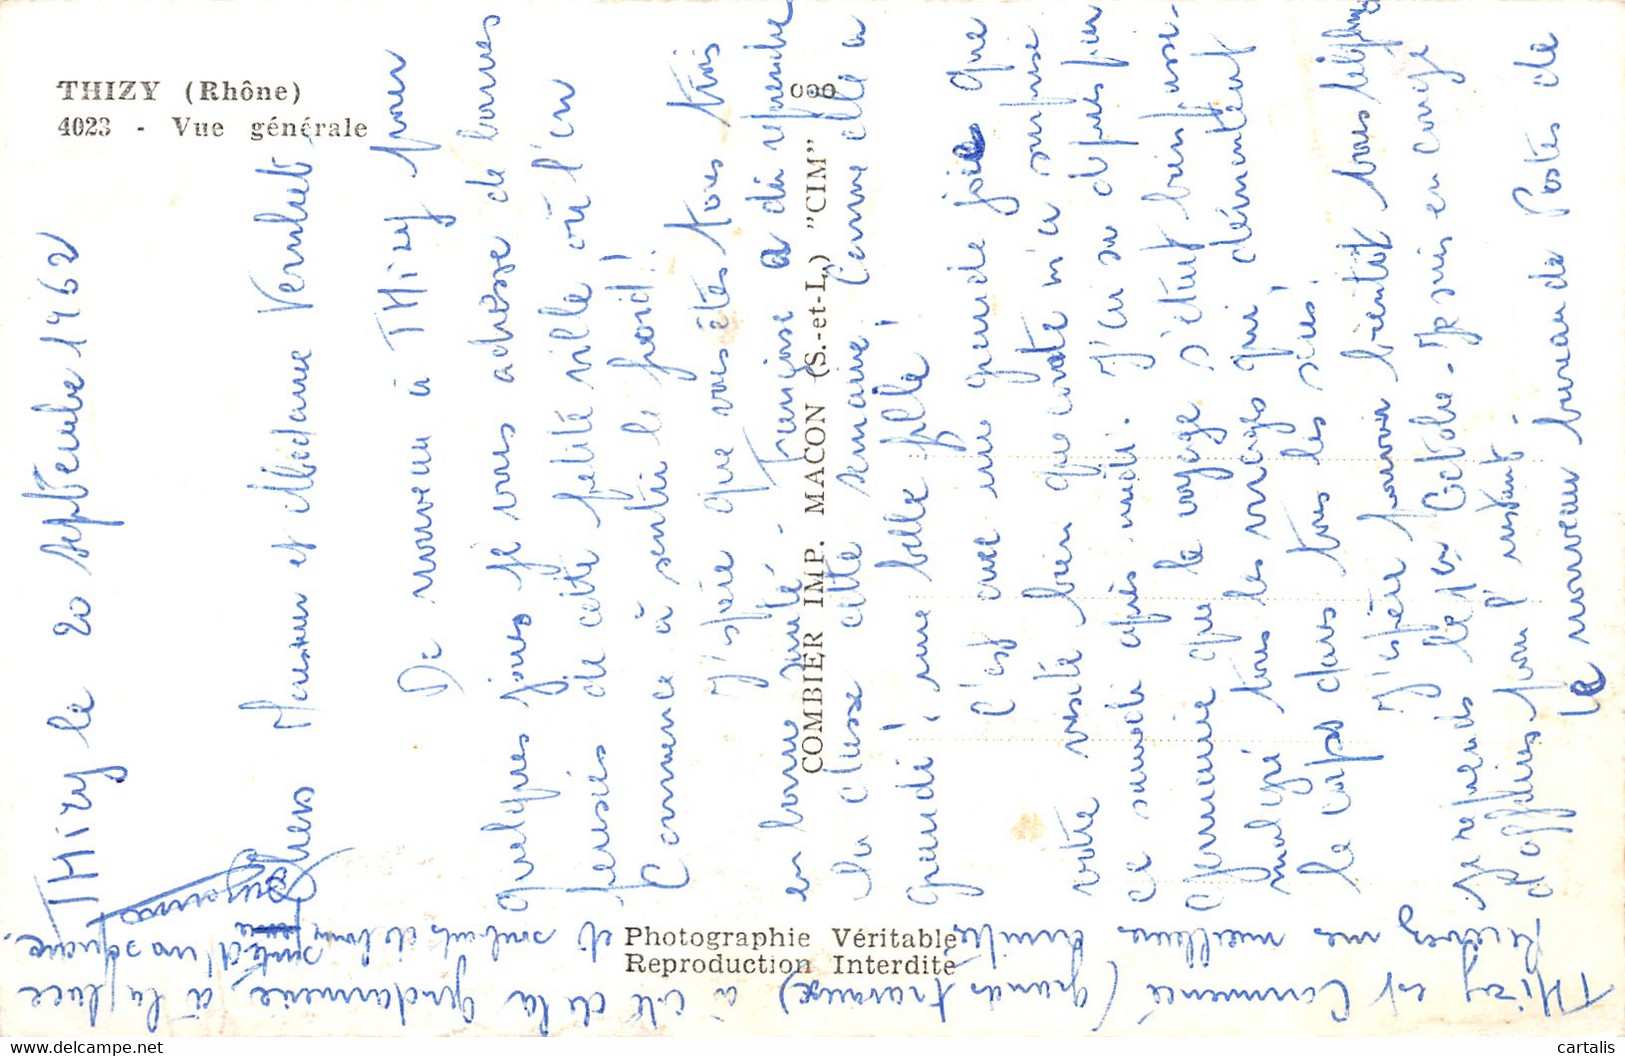 THIZY (Rhône)
4023 - Vue générale
COMBIER IMP. MACON (S.-et-L.) "CIM"
Photographie Véritable
Reproduction Interdite
THizy le 20 septembre 1962
Chers Monsieur et Madame Vernhet,
De nouveau à THizy pour
quelques jours je vous adresse de bonnes
pensées de cette petite ville où l'on
commence à sentir le froid!!
J'espère que vous êtes tous trois
en bonne santé. Françoise a dû reprendre
la classe cette semaine comme elle a
grandi ; une belle fille!
C'est avec une grande joie que
votre visite bien que courte m'a surprise
ce samedi après midi. J'ai su depuis par
Germaine que le voyage s'était bien passé
malgré tous les virages qui démontent
le corps dans tous les sens!
J'espère pouvoir bientôt vous téléphoner
je reprends le 1er Octobre - Je suis en congé
d'affaires pour l'instant -
Le nouveau bureau de Postes de
THizy est commencé (grands travaux) à côté de la gendarmerie, à la place
d'un square.
Recevez mes meilleures amitiés et souhaits de bonne santé
Suzanne
cartalis
www.delcampe.net